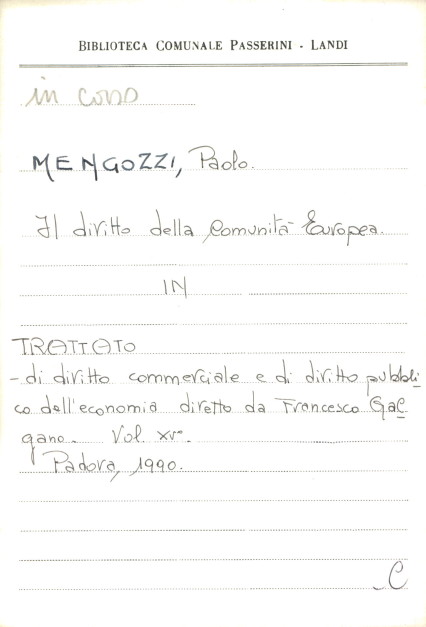 BIBLIOTECA COMUNALE PASSERINI - LANDI
in corso
MENGOZZI, Paolo.
Il diritto della Comunità Europea.
IN
TRATTATO
- di diritto commerciale e di diritto pubbli
co dell'economia diretto da Francesco Gal
gano. Vol. XV°.
Padova, 1990.
C